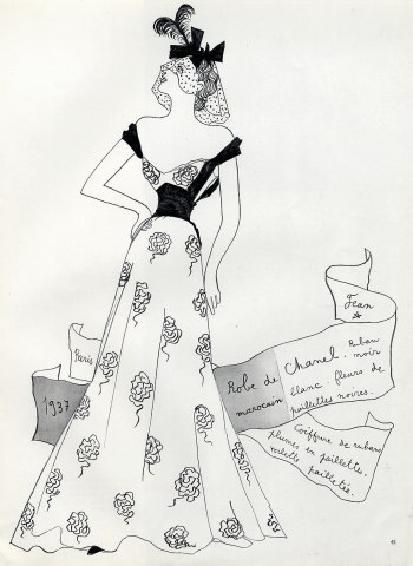 Paris
1937
Jean
Robe de Chanel. Ruban
marocain blanc. fleurs de noir
paillettes noires.
Coiffure de rubans
plumes en paillettes.
voilette pailletée.